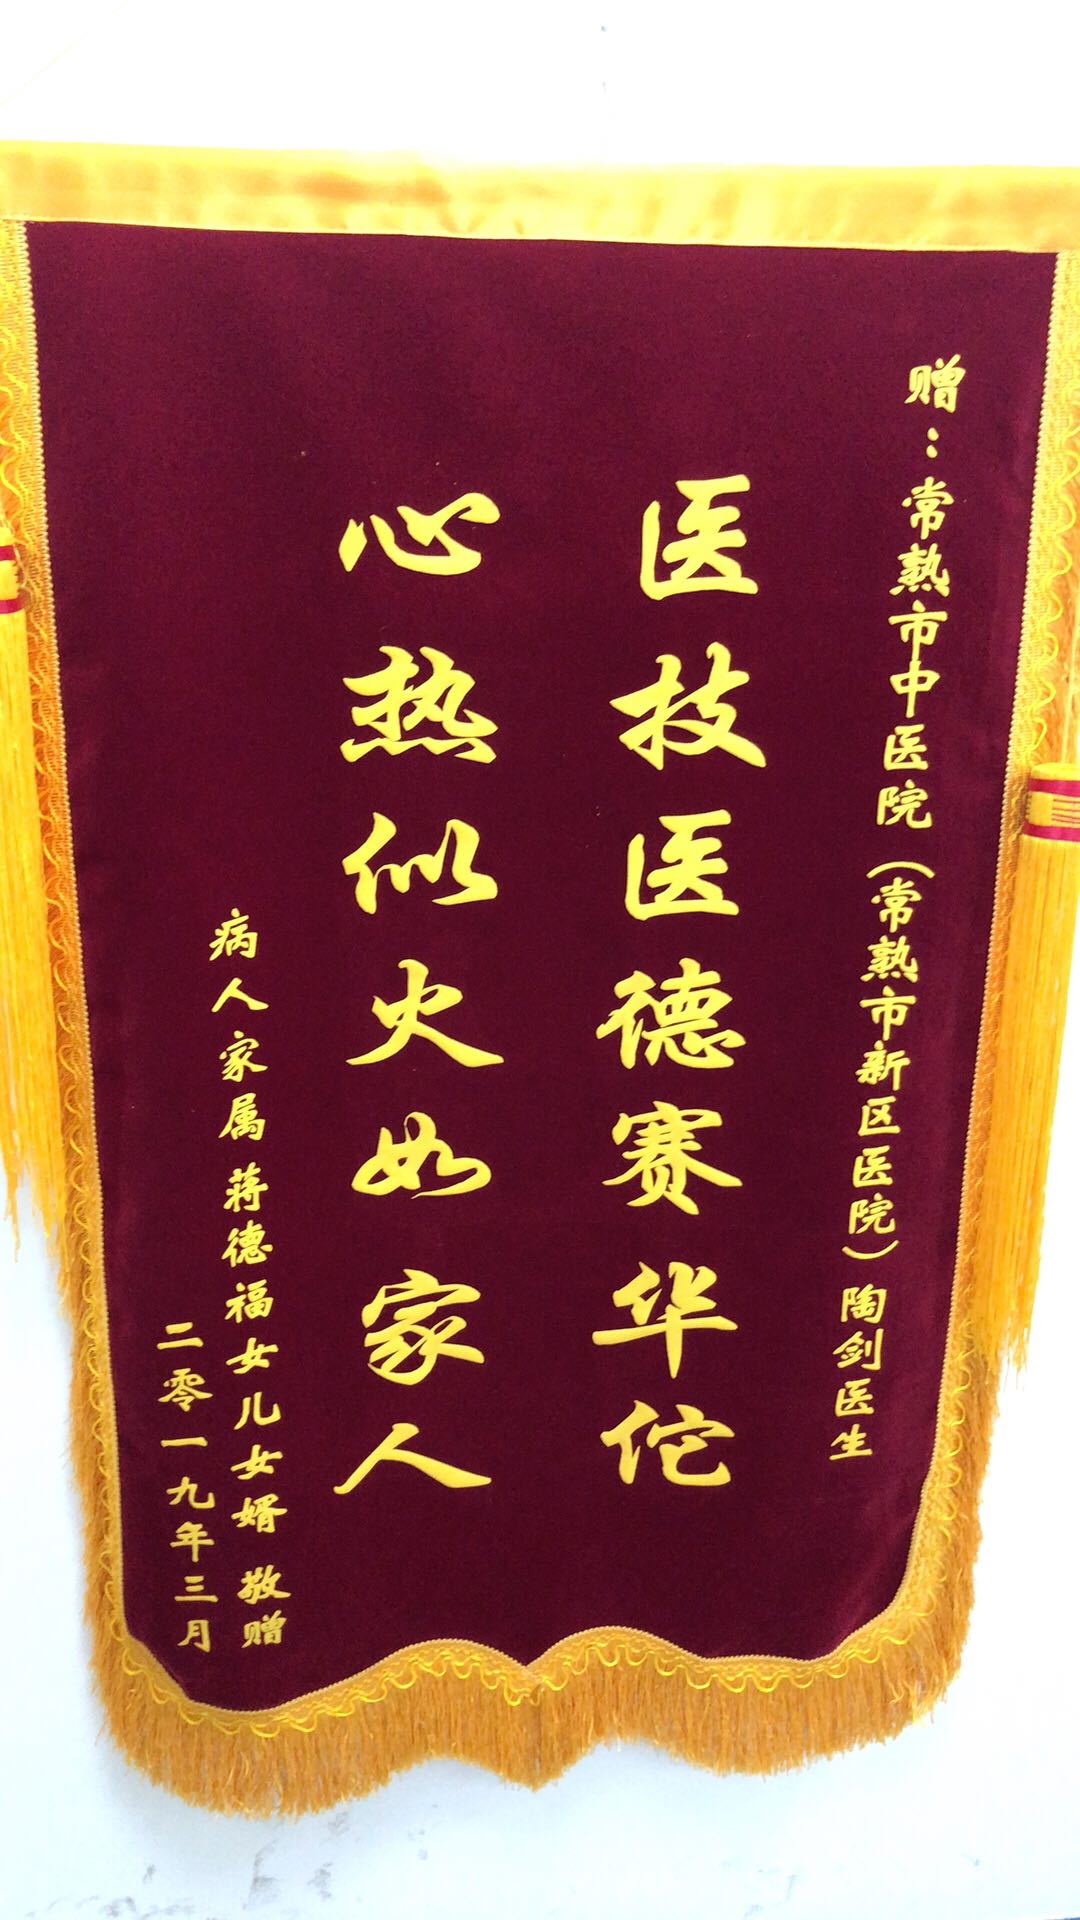 赠：常熟市中医院（常熟市新区医院）陶剑医生
医技医德赛华佗
心热似火如家人
病人家属 蒋德福女儿女婿 敬赠
二零一九年三月